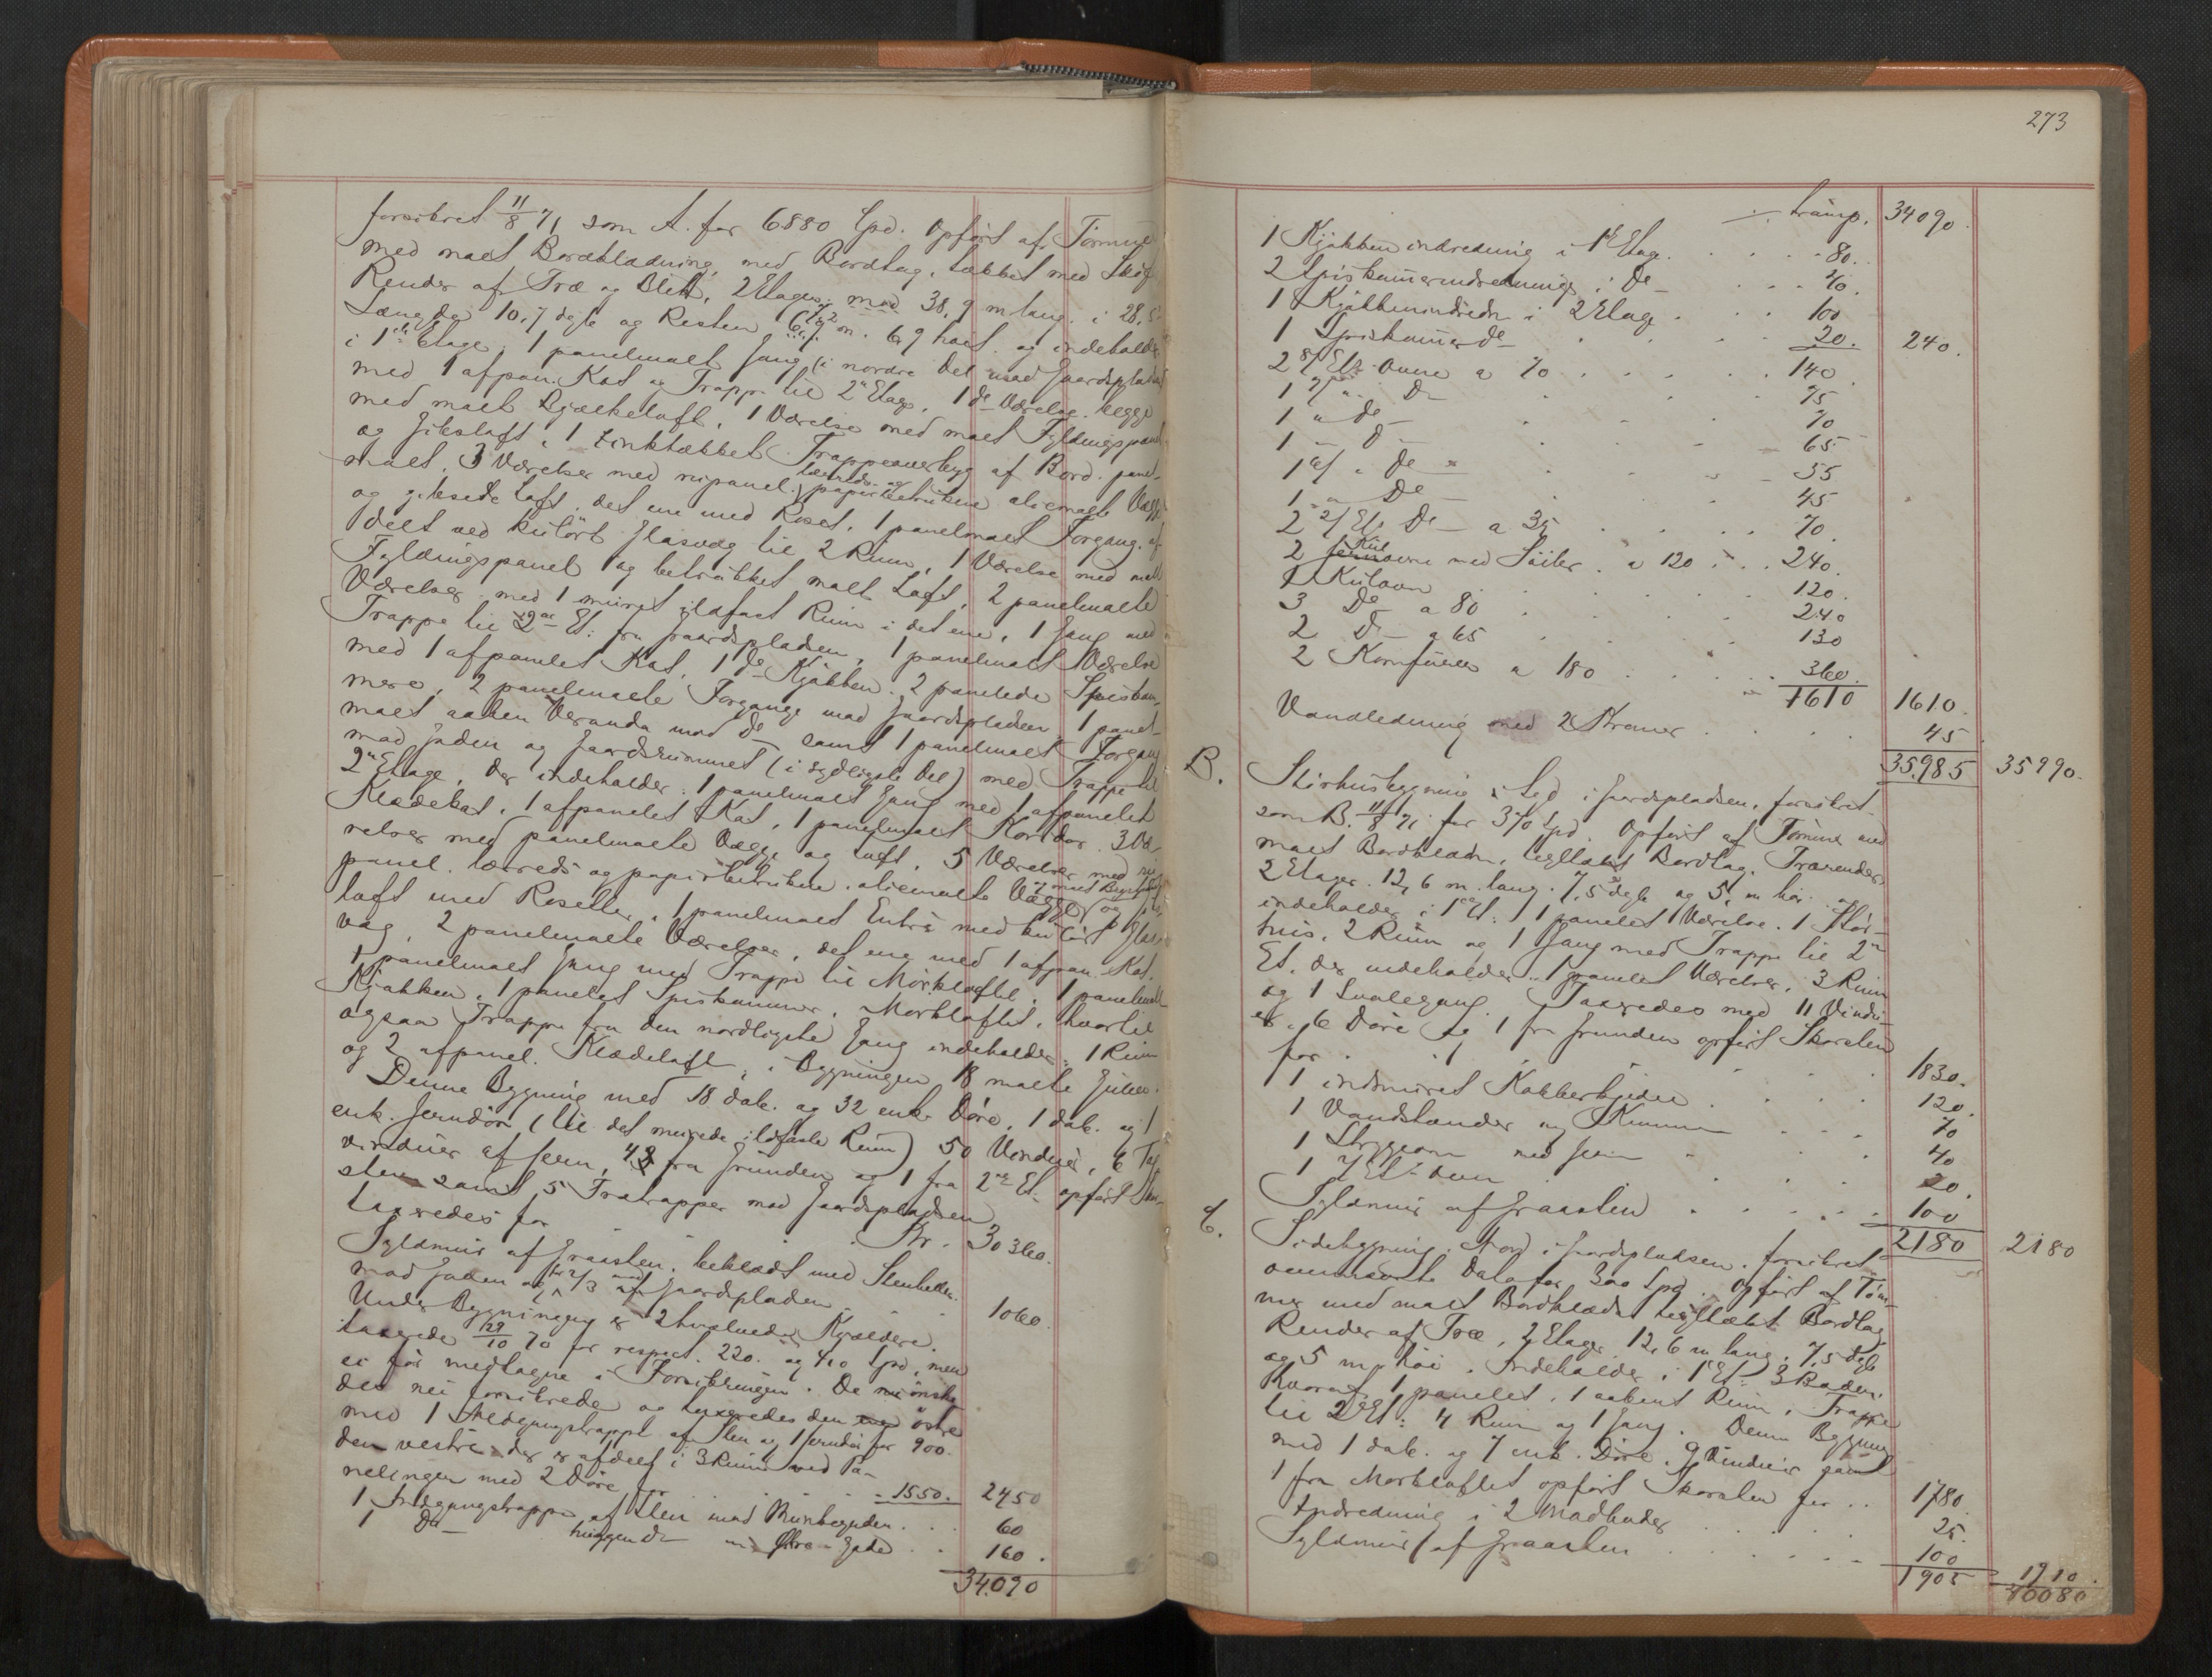 forsikret 11/8 71 som A. for 6880 Spd. Opført af Tømmer
med malt Bordklædning, med Bordtag, tækket med Skif.
Render af Træ og Blik, 2 Etager, mod 38,9 m lang. i 28,5
Længde 10,7 dyb og Resten 6,9 m. 6,9 høit. og indeholder
i 1ste Etage: 1 panelmalt Gang (i nordre Del mod Gaardspladsen)
med 1 afpan. Kot og Trappe til 2n Etage, 1 do Værelse. begge
med malt Bjælkeloft, 1 Værelse med malt Fyldingspanel
og Gibsloft, 1 zinktækket Trappeoverbyg af Bord. panel-
malt, 3 Værelser med rispanel. lærreds- og papirbetrukne oliemalte Vægge
og gibsede Loft, det ene med Roset, 1 panelmalt Forgang. af-
delt ved kulört Glasvæg til 2 Rum, 1 Værelse med malt
Fyldingspanel og betrukket malt Loft, 2 panelmalte
Værelser. med 1 muret ildfast Rum i det ene, 1 Gang med
Trappe til 2den Et: fra Gaardspladsen, 1 panelmalt Værelse
med 1 afpanelet Kot, 1 do Kjøkken. 2 panelede Spiskam-
mere, 2 panelmalte Forgange mod Gaardspladsen 1 panel-
malt aaben Veranda mod do samt 1 panelmalt Forgang
mod Gaden og Gaardsrummet (i sydligste Del) med Trappe til
2n Etage, der indeholder: 1 panelmalt Gang med 1 afpanelet
Klædekot, 1 afpanelet Kot, 1 panelmalt Korridor. 3 Væ-
relser med panelmalte Vægge og Loft, 5 Værelser med ris-
panel. lærreds og papirbetrukne. oliemalte Vægge og
loft med Rosetter, 1 panelmalt Entré med kulört Glas-
væg, 2 panelmalte Værelser, det ene med 1 afpan. Kot.
1 panelmalt Gang med Trappe til Mørkloftet. 1 panelmalt
Kjøkken, 1 panelet Spiskammer, Mørkloftet, hvortil
ogsaa Trappe fra den nordligste Gang indeholder: 1 Rum
og 2 afpanel. Klædeloft, i Bygningen 18 malte Gulve.
Denne Bygning med 18 dob. og 32 enk. Døre, 1 dob. og 1
enk. Jerndør (til det murede ildfaste Rum) 50 Vinduer, 6 Tag-
vinduer af Jern, 4 fra Grunden og 1 fra 2den Et. opført Skor-
sten samt 5 Trætrapper mod Gaardspladsen
taxeredes for . . . Kr. 30360.
Syldmur af Graasten, beklædt med Stenheller
mod Gaden og til 2/3 mod Gaardspladsen . . 1060.
Under Bygningen er 2 hvælvede Kjældere.
taxerede 29/10 70 for respect. 220. og 410 Spd, men
ei før medtagne i Forsikringen. De ønske
des nu forsikrede og taxeredes den østre
med 1 Nedgangstrappe af Sten og 1 Jerndør for 900.
den vestre der er afdelt i 3 Rum ved Pa-
nelinger med 2 Døre for . . . 1550. 2450
1 Indgangstrappe af Sten mod Munkegaden . . . 60
1 Do huggen do mod Øvre-Gade . . 160.
34.090
273
Transp. 34090.
1 Kjøkkenindredning i 1ste Etage . . . 80.
2 Spiskammerindredninge i Do . . . 40.
1 Kjøkkenindredn i 2 Etage . . . 100
1 Spiskammer do . . . 20. 240.
2 8/ Etg. Ovne a 70 . . . 140.
1 7/ " Do . . . 75
1 " do . . . 70
1 — D — . . . 65
1 6/ " do " . . . 55
1 " Do . . . 45
2 2/ Et. Do a 35 . . . 70.
2 Kulovne med Søiler . a 120 . . 240.
1 Kulovn . . . 120.
3 Do a 80 . . . 240
2 D— a 65 . . . 130
2 Komfurer a 180 . . . 360.
1610 1610.
Vandledning med 2 Kraner . . . 45
35.985 35990.
B. Skirhusbygning i Syd i Gaardspladsen, forsikret
som B. 11/8 71 for 370 Spd. Opført af Tømmer med
malt Bordklædn, tegltækt Bordtag. Trærender
2 Etager. 12,6 m. lang. 7,5 dyb og 5, m høi. og
indeholder i 1ste Et: 1 panelet Værelse. 1 Skir-
hus. 2 Rum og 1 Gang med Trappe til 2n
Et. der indeholder: 1 panelet Værelse, 3 Rum
og 1 Svalegang. Taxeredes med 11 Vindu-
er, 6 Døre og 1 fra Grunden opført Skorsten
for . . . 1830.
1 indmuret Kobberkjedel . . . 120.
1 Vandstander og Kumme . . . 70
1 Strygeovn med Jern . . . 40
1 2/ Et: Ovn . . . 20.
Syldmur af Graasten . . . 100
2180 2180
C. Sidebygning. Nord i Gaardspladsen. forsikret
ovennævnte Dato for 300 Spd. Opført af Töm-
mer med malt Bordklædn tegltækt Bordtag
Render af Træ, 2 Etager 12,6 m lang. 7,5 dyb
og 5 m. høi. Indeholder i 1ste Et: 3 Boder,
hvoraf 1 panelet, 1 aabent Rum, Trappe
til 2den Et: 4 Rum og 1 Gang. Denne Bygning
med 1 dob. og 7 enk. Döre. 9 Vinduer samt
1 fra Mørkloftet opført Skorsten for .. 1780.
Indredning i 2 Madboder . . . 25.
Syldmur af Graasten . . . 100
1905 1910.
40080